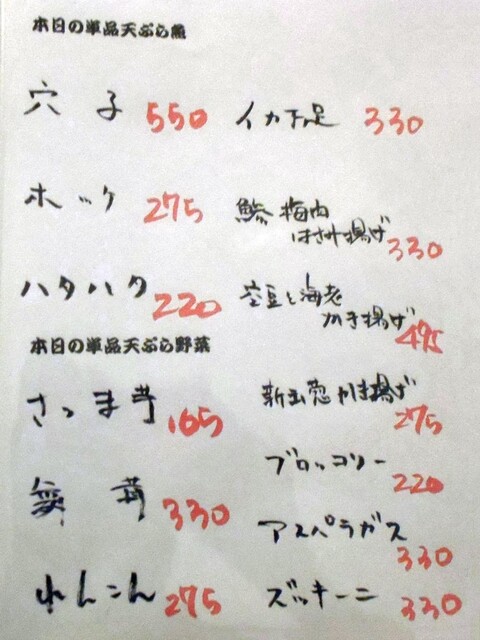 本日の単品天ぷら魚
穴子 550
イカ下足 330
ホッケ 275
鯵梅肉
はさみ揚げ 330
ハタハタ 220
空豆と海老
かき揚げ 495
本日の単品天ぷら野菜
さつま芋 165
新玉葱かき揚げ
275
ブロッコリー
220
舞茸 330
アスパラガス
330
れんこん 275
ズッキーニ 330